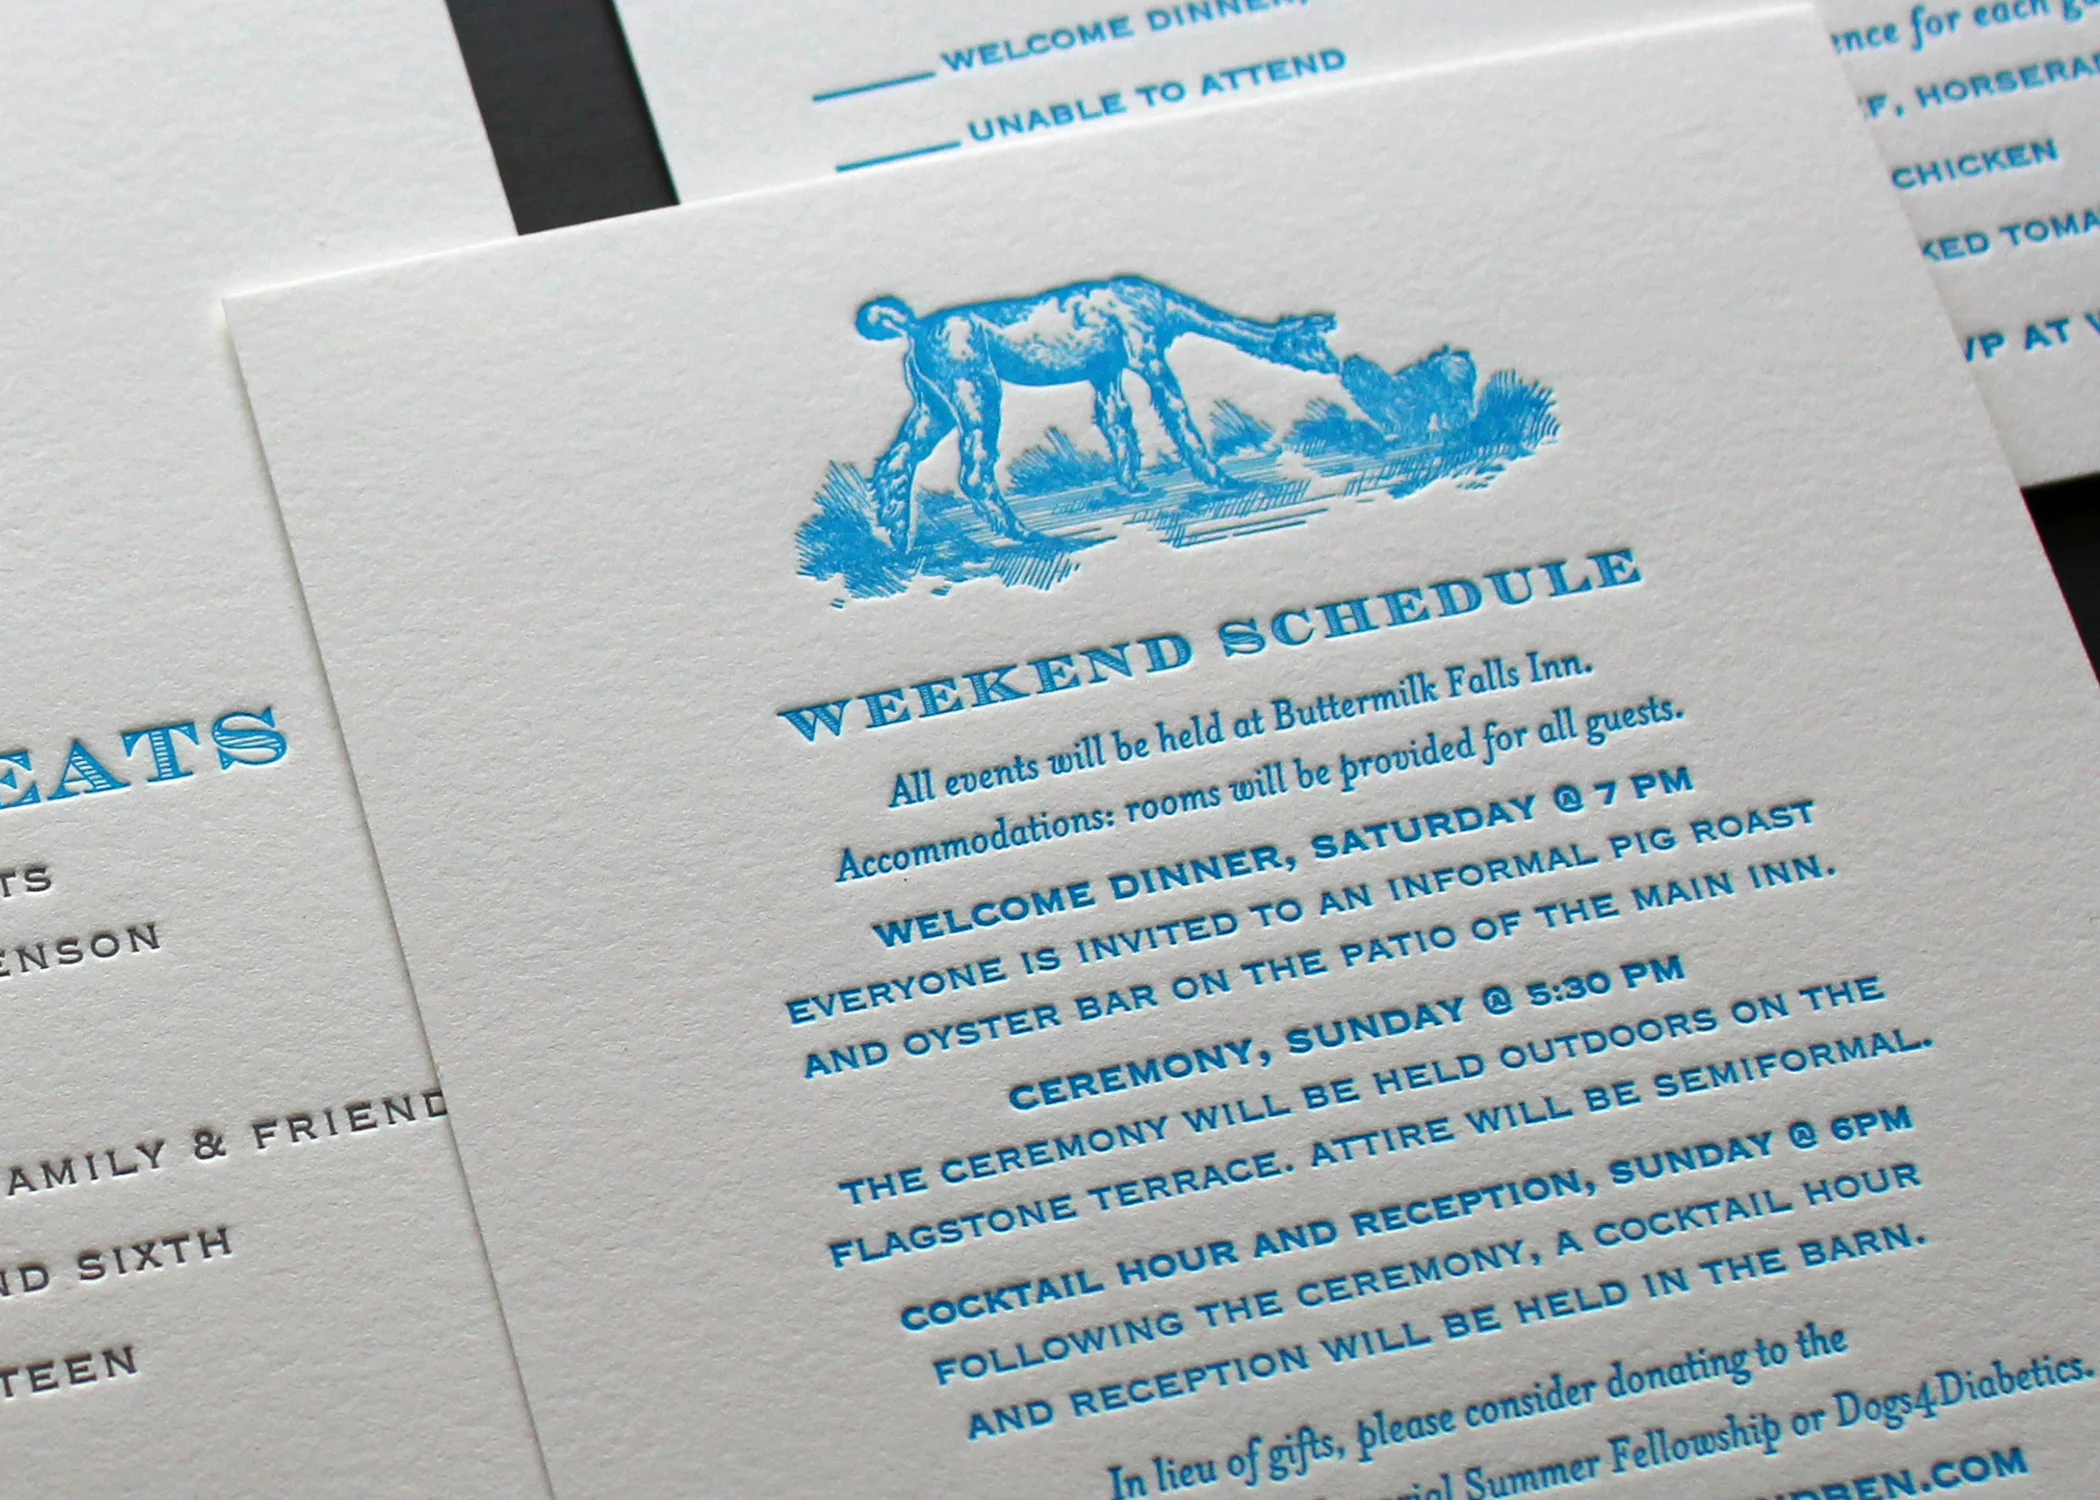 WELCOME DINNER,
UNABLE TO ATTEND
for each
HORSERA
CHICKEN
KED TOMA
VP AT
EATS
TS
ENSON
AMILY & FRIEND
ND SIXTH
TEEN
WEEKEND SCHEDULE
All events will be held at Buttermilk Falls Inn.
Accommodations: rooms will be provided for all guests.
WELCOME DINNER, SATURDAY @ 7 PM
EVERYONE IS INVITED TO AN INFORMAL PIG ROAST
AND OYSTER BAR ON THE PATIO OF THE MAIN INN.
CEREMONY, SUNDAY @ 5:30 PM
THE CEREMONY WILL BE HELD OUTDOORS ON THE
FLAGSTONE TERRACE. ATTIRE WILL BE SEMIFORMAL.
COCKTAIL HOUR AND RECEPTION, SUNDAY @ 6PM
FOLLOWING THE CEREMONY, A COCKTAIL HOUR
AND RECEPTION WILL BE HELD IN THE BARN.
In lieu of gifts, please consider donating to the
Summer Fellowship or Dogs4Diabetics.
NDBEN.COM